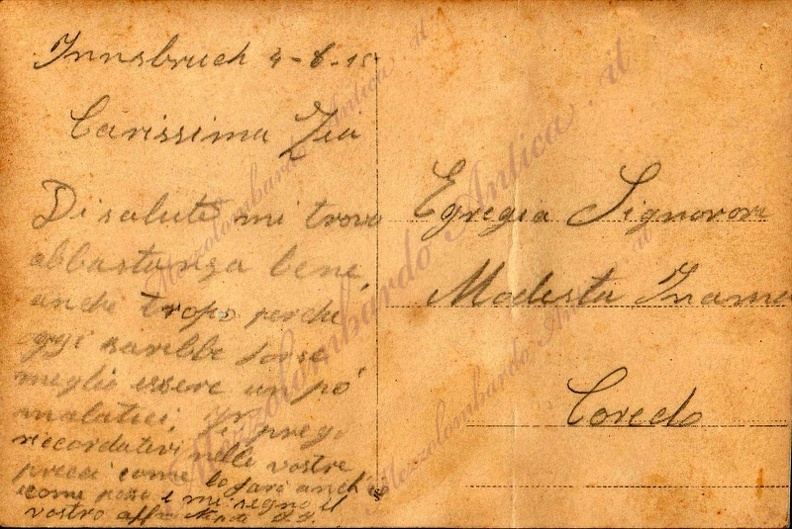 Innsbruch 4-6-15
Carissima Zia
Di salute mi trovo
abbastanza bene,
anche tropo perche
oggi sarebbe forse
meglio essere un po'
malatici, prego
riccordatevi nelle vostre
preci come lo farò anch'io
come posso e mi segno il
vostro
Egregia Signorora
Modesta Inama
Coredo
Mezzolombardo Antica.it
Mezzolombardo Antica.it
Mezzolombardo Antica.it